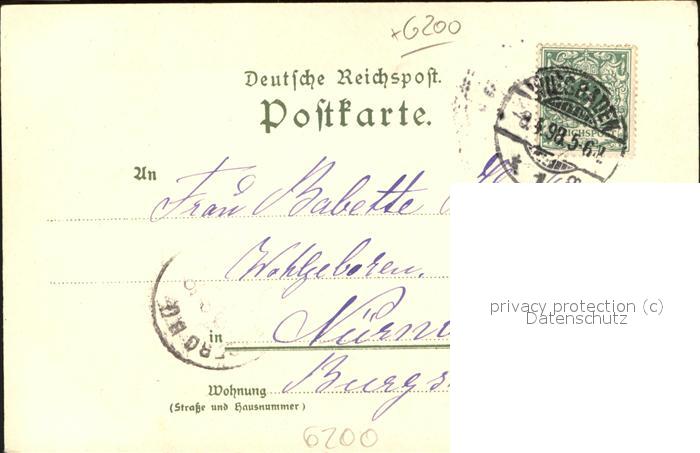 6200
Deutsche Reichspost.
Postkarte.
WIESBADEN
REICHSPOST
An
Frau Babette
Wohlgeboren.
privacy protection (c)
Datenschutz
in Nürn
Wohnung Burgs
(Straße und Hausnummer)
6200